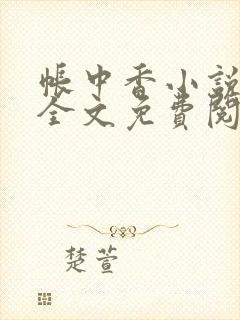 帐中香小説
全文免費閱
楚萱